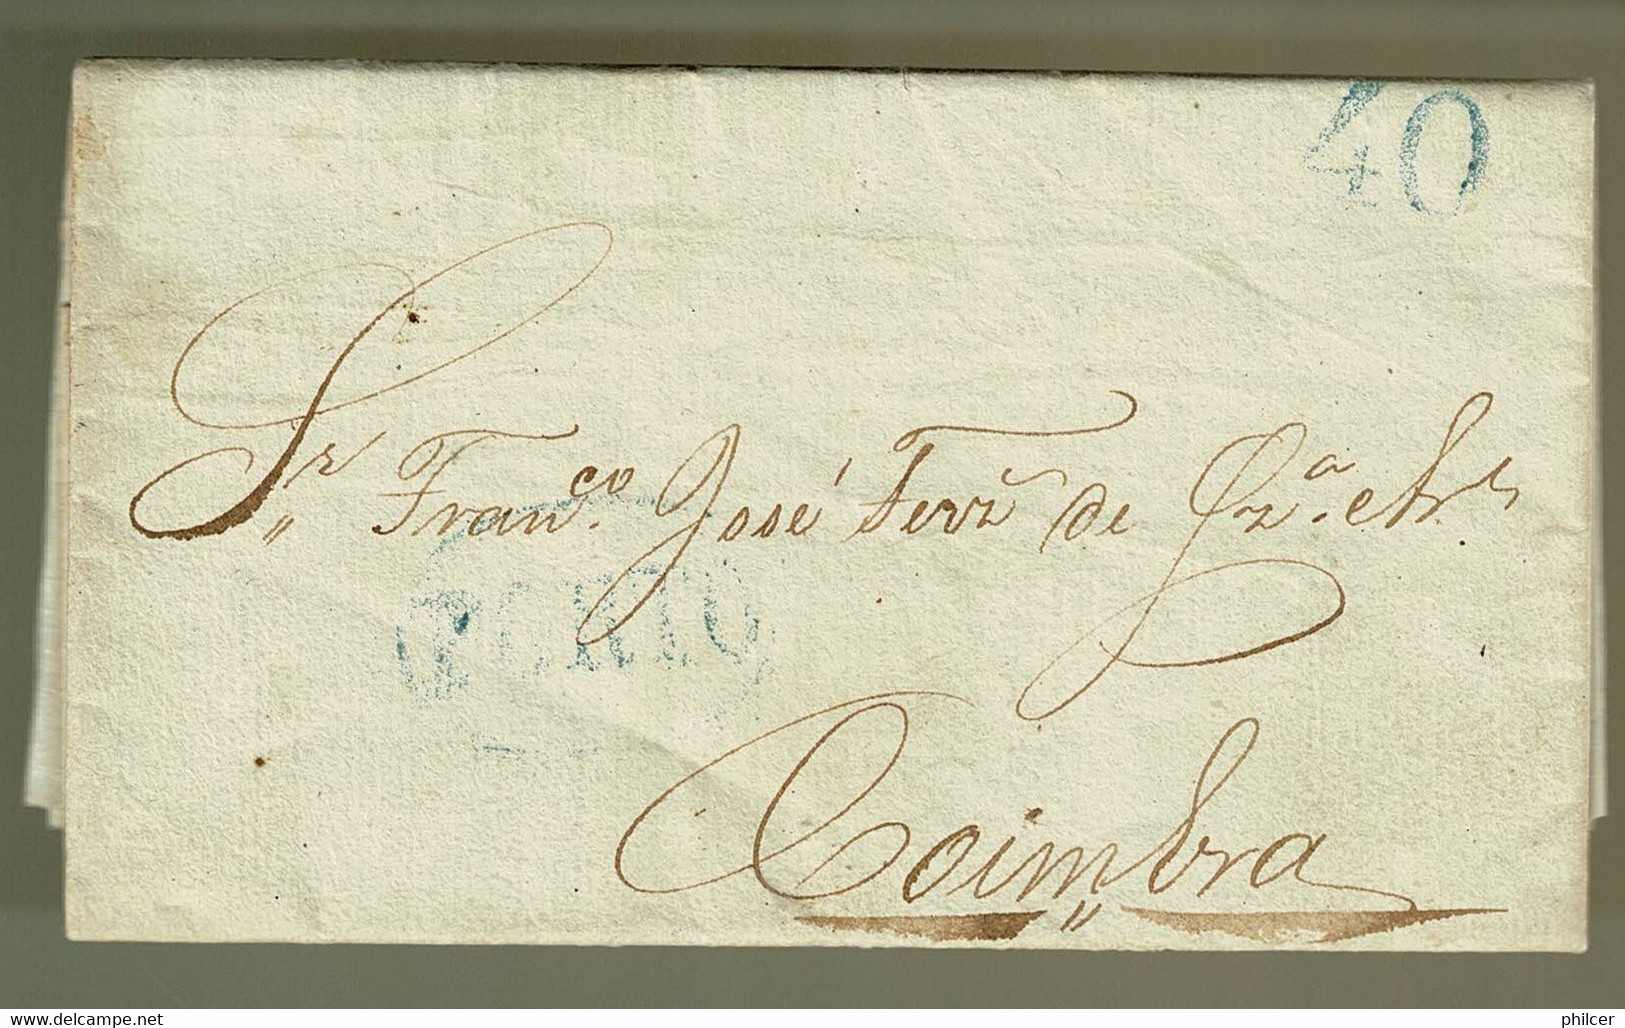 40
Sr. Franco. José Ferrª de Qzª. &
PORTO
Coimbra
www.delcampe.net
philcer